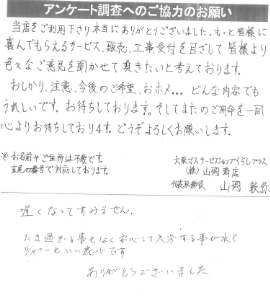 アンケート調査へのご協力のお願い
当店をご利用下さり本当にありがとうございました。もっと皆様に
喜んでもらえるサービス、販売、工事受付を目ざして皆様より
色々なご意見を聞かせて頂きたいと考えております。
おしかり、注意、今後のご希望、おホメ... どんな内容でも
うれしいです。お待ちしております。そしてまたのご用命を一同
心よりお待ちしております。どうぞよろしくお願いします。
※お名前やご住所は不要です。
で対応しております。
大阪ガスサービスショップくらしプラス
(株)山岡商店
代表取締役 山岡
遅くなってすみません。
事もなく安心して入浴する事が出来
です
ありがとうございました